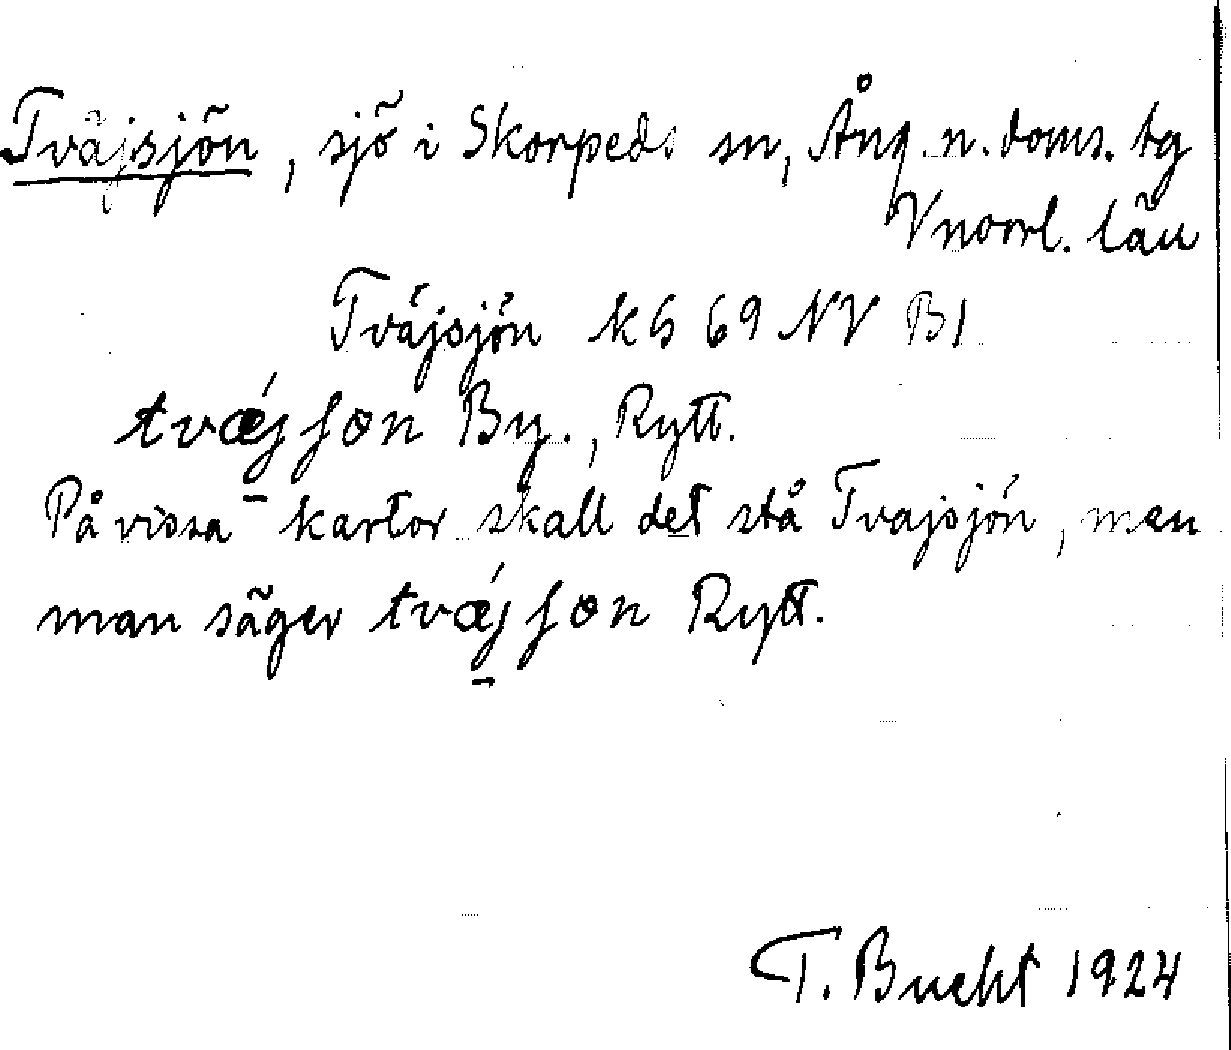 Tväjsjön, sjö i Skorpeds sn, Ång. n. doms. tg
Vnorrl. län
Tväjsjön KS 69 NV B1
tvǽjʃøn By., Rytt.
På vissa kartor skall det stå Tvajsjön, men
man säger tvǽjʃøn Rytt.
T. Bucht 1924